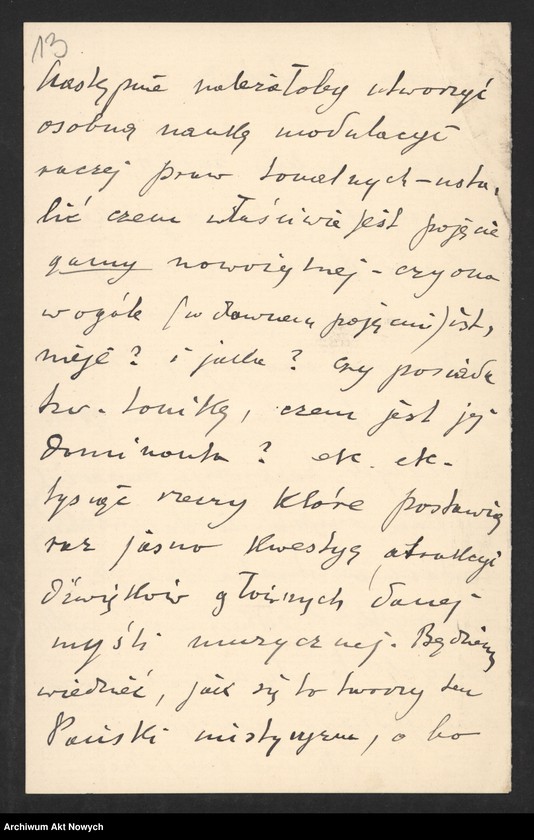 13
Następnie należałoby utworzyć
osobną naukę modulacyi
raczej praw tonalnych – usta-
lić czem właściwie jest pojęcie
gamy nowożytnej – czy ona
wogóle (w dawnem pojęciu) ist-
nieje? i jaka? Czy posiada
tzw. tonikę, czem jest jej
dominanta? etc. etc.
tysiąc rzeczy które postawią
raz jasno kwestyę atrakcyi
dźwięków głównych danej
myśli muzycznej. Będziemy
wiedzieć, jak się to tworzy ten
Pański mistycyzm, o bo
Archiwum Akt Nowych